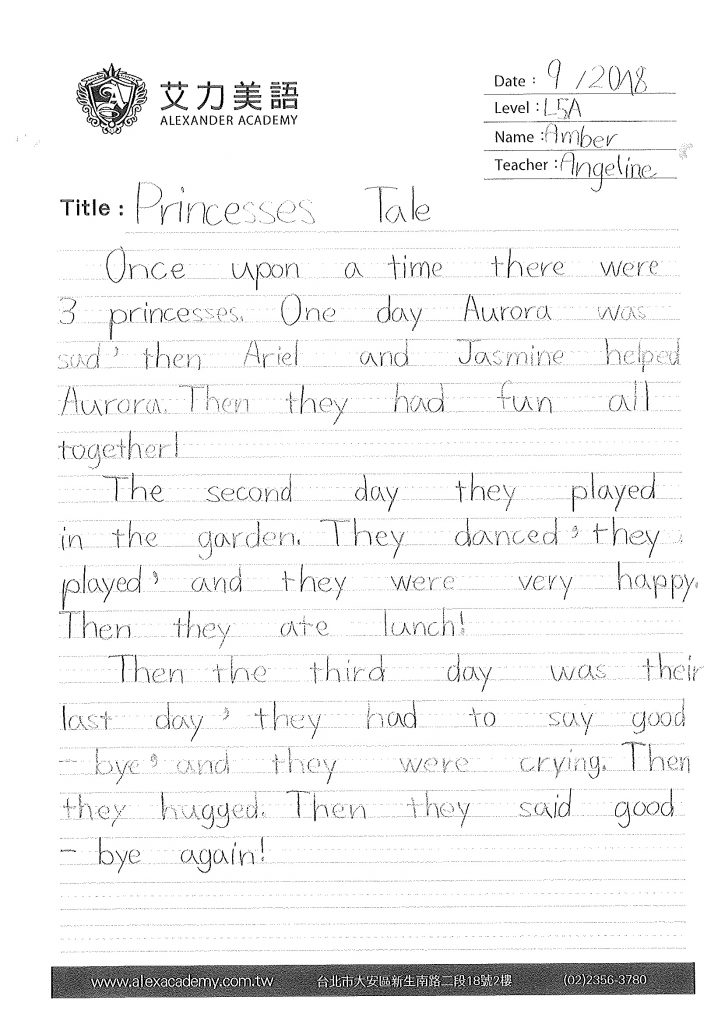 艾力美語
ALEXANDER ACADEMY
Date : 9 /2018
Level : L5A
Name : Amber
Teacher : Angeline
Title : Princesses Tale
Once upon a time there were
3 princesses. One day Aurora was
sad, then Ariel and Jasmine helped
Aurora. Then they had fun all
together!
The second day they played
in the garden. They danced, they
played, and they were very happy.
Then they ate lunch!
Then the third day was their
last day, they had to say good
- bye, and they were crying. Then
they hugged. Then they said good
- bye again!
www.alexacademy.com.tw 台北市大安區新生南路二段18號2樓 (02)2356-3780